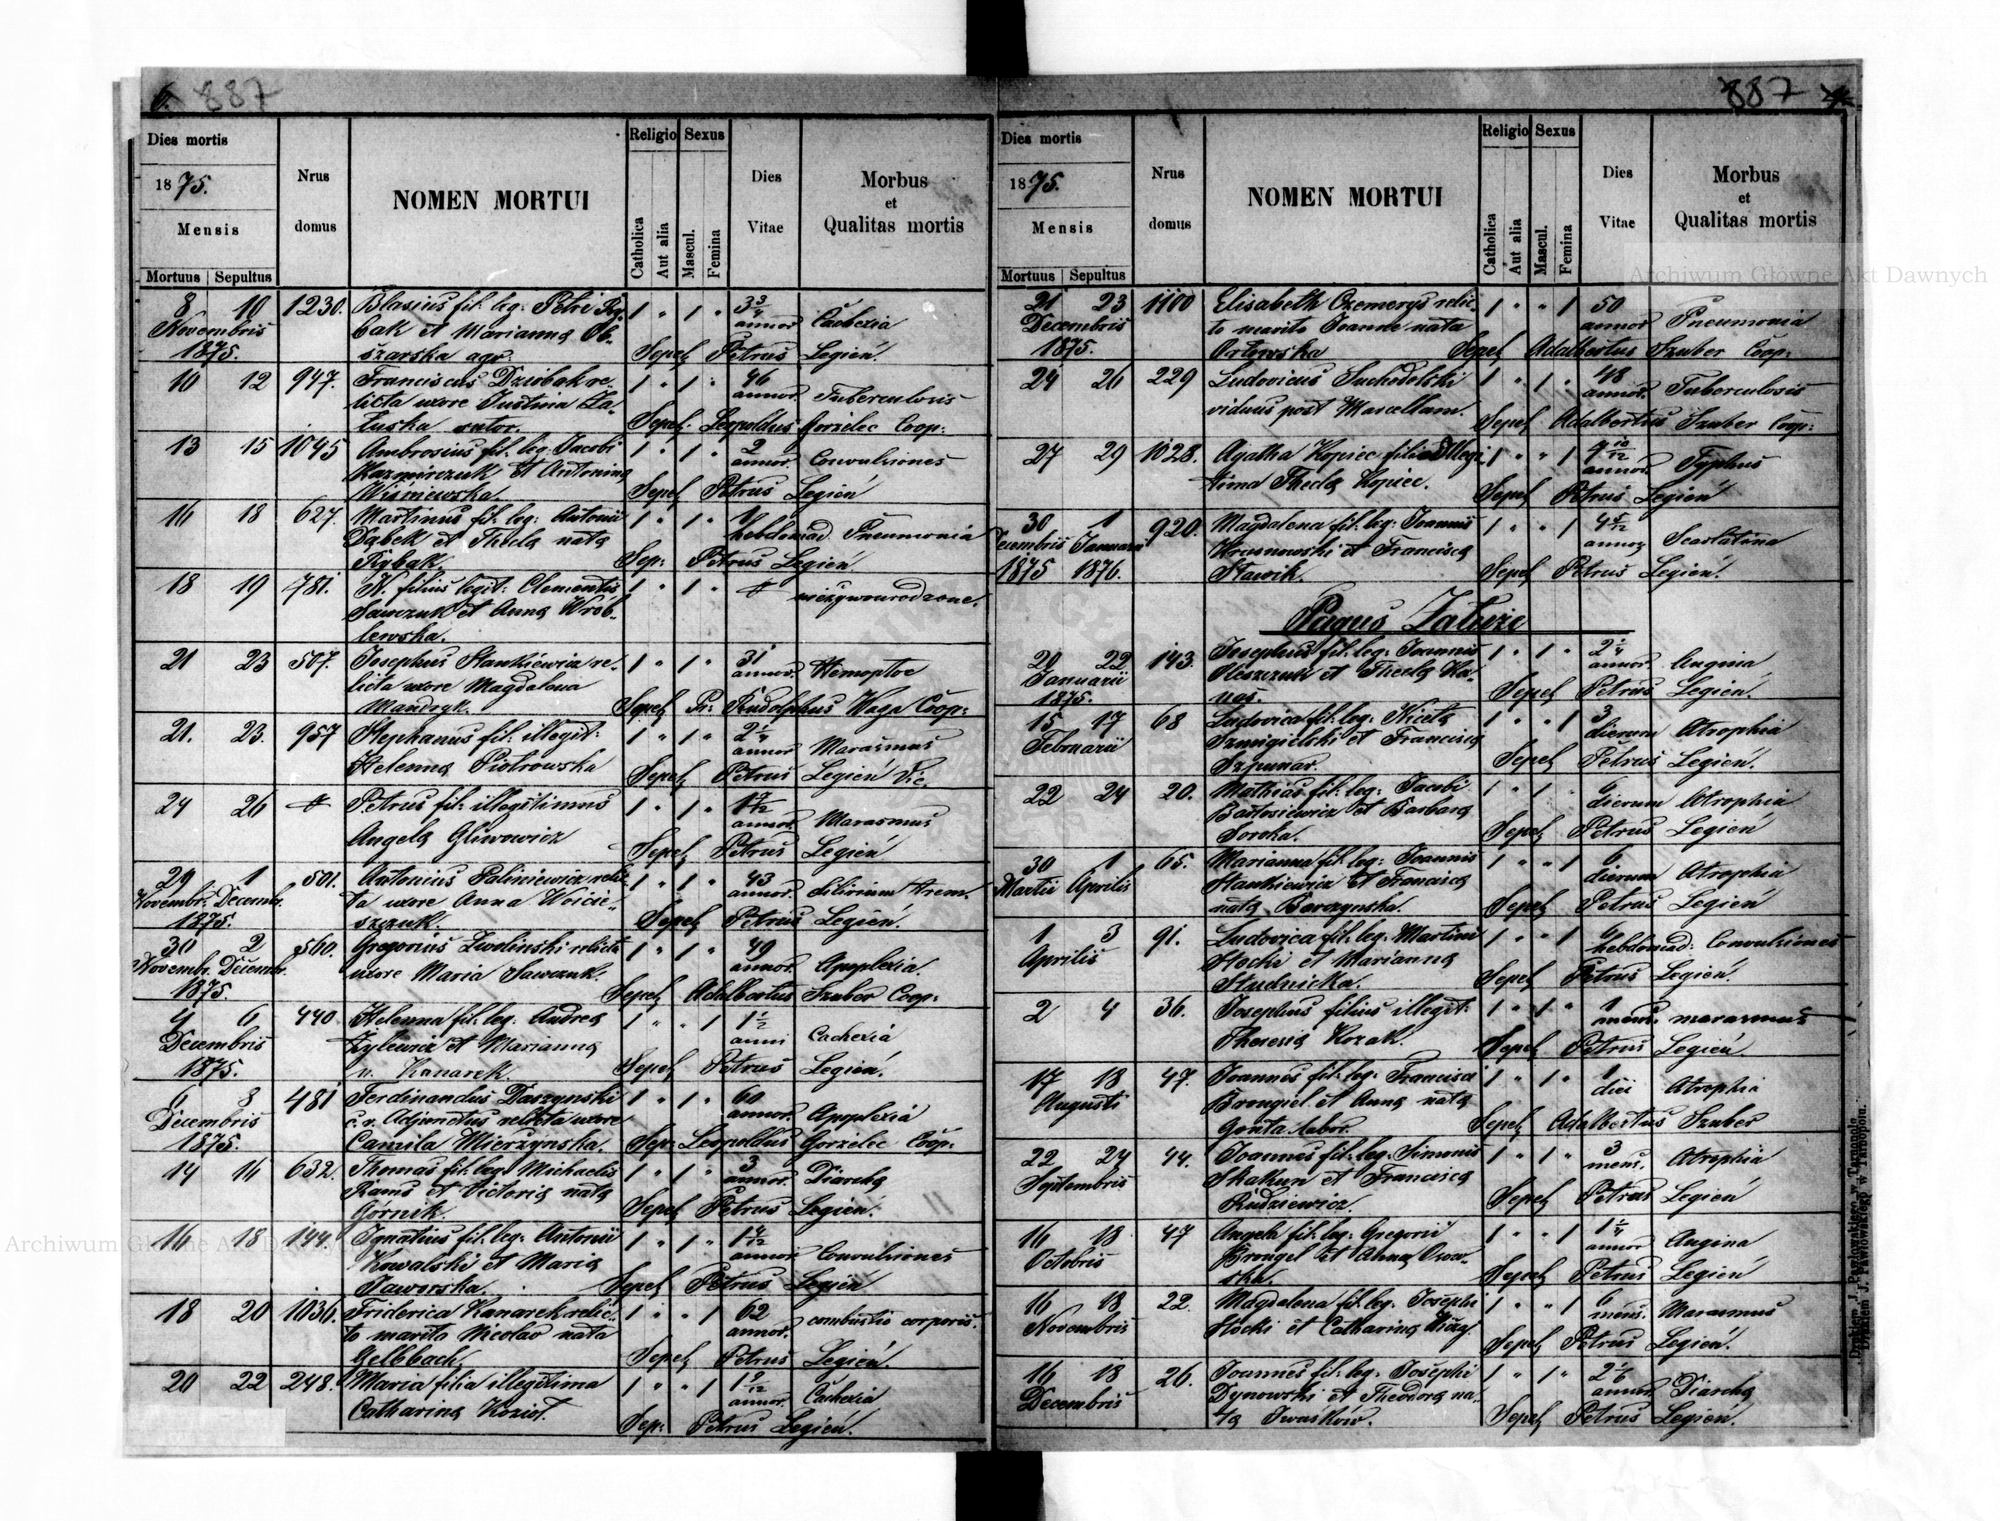 6. 887
Dies mortis
1875.
Mensis
Mortuus | Sepultus
Nrus domus
NOMEN MORTUI
Religio
Catholica
Aut alia
Sexus
Mascul.
Femina
Dies Vitae
Morbus et Qualitas mortis
8 10 1230. Blasius fil. leg: Petri Ry- 1 " 1 " 3 3/4
Novembris bak et Marianna Ob- annor Cachexia
1875. szarska agr. Sepel Petrus Legień.
10 12 947. Franciscus Dziobak re- 1 " 1 " 46
licta uxore Justina Za- annor. Tuberculosis
łuska sutor. Sepel. Leopoldus Gorzelec Coop:
13 15 1045 Ambrosius fil. leg. Jacobi 1 " 1 " 2
Kazmirczuk et Antonina annor. Convulsiones
Wiśniewska. Sepel Petrus Legień
16 18 627. Martinus fil. leg: Antonii 1 " 1 " 1
Dąbek et Thecla nata hebdomad. Pneumonia
Rybak. Sep: Petrus Legień
18 19 781. N. filius legit: Clementis 1 " 1 "
Sawczuk et Anna Wrób- nieżywourodzone.
lewska.
21 23 507. Josephus Stankiewicz re- 1 " 1 " 31
licta uxore Magdalena annor. Hemoptoe
Mandryk. Sepel Pr: Rudolphus Waga Coop:
21. 23. 957 Stephanus fil. illegit: 1 " 1 " 2 1/4
annor Marasmus
Helenna Piotrowska Sepel Petrus Legień Vic.
24 26 Petrus fil: illegitimus 1 " 1 " 1 7/12
annor. Marasmus
Angela Gliwowicz Sepel Petrus Legień
29 1 501. Antonius Paliniewicz relic- 1 " 1 " 43
Novembr. Decembr. ta uxore Anna Woicie- annor. delirium trem.
1875. szczuk. Sepel Petrus Legień.
30 2 560. Gregorius Zwolinski relicta 1 " 1 " 49
Novembr. Decembr. uxore Maria Sawczuk. annor. Apoplexia
1875. Sepel Adalbertus Szuber Coop:
4 6 440. Helenna fil. leg. Andrea 1 " " 1 1 1/2
Decembris Zylewicz et Marianna anni Cachexia
1875. n. Kanarek. Sepel Petrus Legień.
6 8 481 Ferdinandus Daszynski 1 " 1 " 60
Decembris c. r. Adjunctus relicta uxore annor. Apoplexia
1875. Camila Mierzynska. Sep: Leopoldus Gorzelec Coop:
14 16 632. Thomas fil. leg. Michaelis 1 " 1 " 3
et Victoria nata annor. Diarrha
Gornik. Sepel Petrus Legień.
16 18 144. Ignatius fil. leg. Antonii 1 " 1 " 1 4/12
Kowalski et Maria annor. Convulsiones
Jaworska. Sepel Petrus Legień
18 20 1036. Friderica Kanarek relic- 1 " " 1 62
to marito Nicolao nata annor. combustio corporis.
Gelbbach. Sepel Petrus Legień.
20 22 248. Maria filia illegitima 1 " " 1 1 9/12
annor. Cachexia
Catharina Kozioł. Sep: Petrus Legień.
887
Dies mortis
1875.
Mensis
Mortuus | Sepultus
Nrus domus
NOMEN MORTUI
Religio
Catholica
Aut alia
Sexus
Mascul.
Femina
Dies Vitae
Morbus et Qualitas mortis
21 23 1100 Elisabeth Czemerys relic- 1 " " 1 50
Decembris to marito Joanne nata annor Pneumonia
1875. Orłowska Sepel Adalbertus Szuber Coop:
24 26 229 Ludovicus Suchodolski 1 " 1 " 48
viduus post Marcellam. annor. Tuberculosis
Sepel Adalbertus Szuber Coop:
27 29 1028. Agatha Kopiec filia illegi- 1 " " 1 9 10/12
tima Thecla Kopiec. annor Typhus
Sepel Petrus Legień
30 1 920. Magdalena fil. leg: Joannis 1 " " 1 4 5/12
Decembris Januarii Krasnowski et Francisca annor Scarlatina
1875 1876. Sławik. Sepel Petrus Legień.
Pagus Załuże
20 22 143. Josephus fil. leg: Joannis 1 " 1 " 2 1/4
Januarii Oleszczuk et Thecla Ka- annor. Angina
1875. nas. Sepel Petrus Legień.
15 17 68 Ludovica fil. leg: Niceta 1 " " 1 3
Februarii Szmigielski et Francisca dierum Atrophia
Szpunar. Sepel Petrus Legień.
22 24 20. Mathias fil. leg: Jacobi 1 " 1 " 6
Bartosiewicz et Barbara dierum Atrophia
Soroka. Sepel Petrus Legień
30 1 65. Marianna fil. leg: Joannis 1 " " 1 6
Martii Aprilis Stankiewicz et Francisca dierum Atrophia
nata Borczynska. Sepel Petrus Legień
1 3 91. Ludovica fil. leg. Martini 1 " " 1
Aprilis Stocki et Marianna hebdomad: Convulsiones
Studnicka. Sepel Petrus Legień.
2 4 36. Josephus filius illegit: 1 " 1 " 1
mens. marasmus
Theresia Kozak. Sepel Petrus Legień.
17 18 47. Joannes fil. leg: Francisci 1 " 1 " 1
Augusti Brongiel et Anna nata diei Atrophia
Gonta labor. Sepel Adalbertus Szuber
22 24 44. Joannes fil. leg: Simonis 1 " 1 " 3
Septembris Skakun et Francisca mens. Atrophia
Rudziewicz. Sepel Petrus Legień
16 18 47 Angela fil. leg: Gregorii 1 " " 1 1 1/4
Octobris Brongel et Anna annor Angina
Sepel Petrus Legień
16 18 22. Magdalena fil. leg: Josephi 1 " " 1 6
Novembris Stocki et Catharina mens. Marasmus
Sepel Petrus Legień.
16 18 26. Joannes fil. leg. Josephi 1 " 1 " 2 1/6
Decembris Dynowski et Theodora na- annor Diarrha
ta Iwaśków. Sepel Petrus Legień.
Drukiem J. Pawłowskiego w Tarnopolu.
Archiwum Główne Akt Dawnych
Archiwum Główne Akt Dawnych